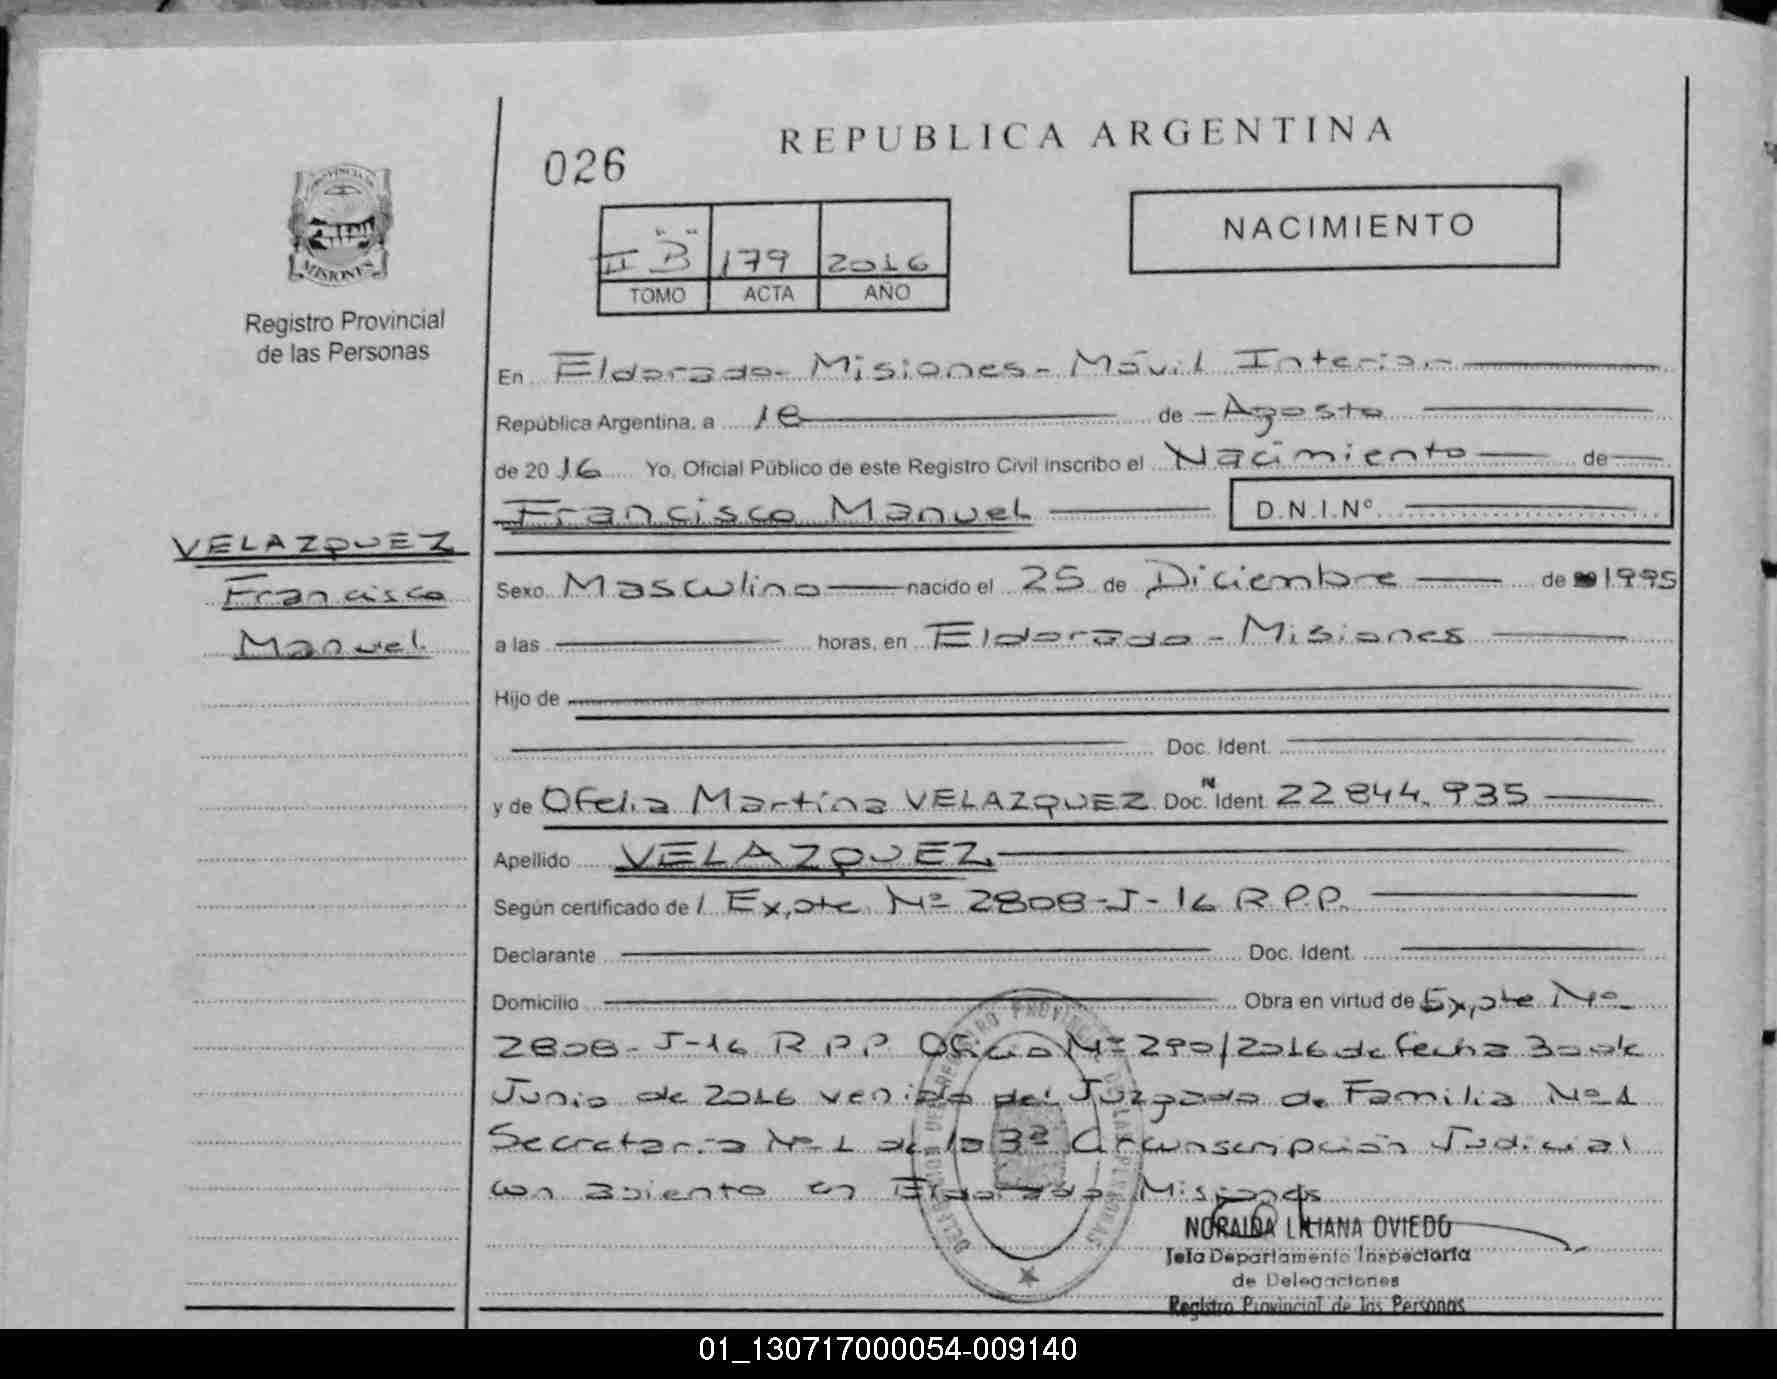 REPUBLICA ARGENTINA
026
NACIMIENTO
II "B" 179 2016
TOMO ACTA AÑO
PROVINCIA DE
MISIONES
Registro Provincial
de las Personas
En Eldorado- Misiones- Móvil Interior-
República Argentina, a 18 de - Agosto
de 20 16 Yo, Oficial Público de este Registro Civil inscribo el Nacimiento de
Francisco Manuel D.N.I.Nº
VELAZQUEZ
Francisco
Manuel
Sexo Masculino nacido el 25 de Diciembre de 1995
a las horas, en Eldorado - Misiones
Hijo de
Doc. Ident.
y de Ofelia Martina VELAZQUEZ Doc. Ident 22.844.935
Apellido VELAZQUEZ
Según certificado de / Expte Nº 2808-J-16 R.P.P.
Declarante Doc. Ident.
Domicilio Obra en virtud de Expte Nº
2808-J-16 R P P Oficio Nº 290/2016 de fecha 30 de
Junio de 2016 venido del Juzgado de Familia Nº 1
Secretaria Nº 1 de la 3ª Circunscripción Judicial
con asiento en Eldorado Misiones
NORAIDA LILIANA OVIEDO
Jefa Departamento Inspectoría
de Delegaciones
Registro Provincial de las Personas
01_130717000054-009140